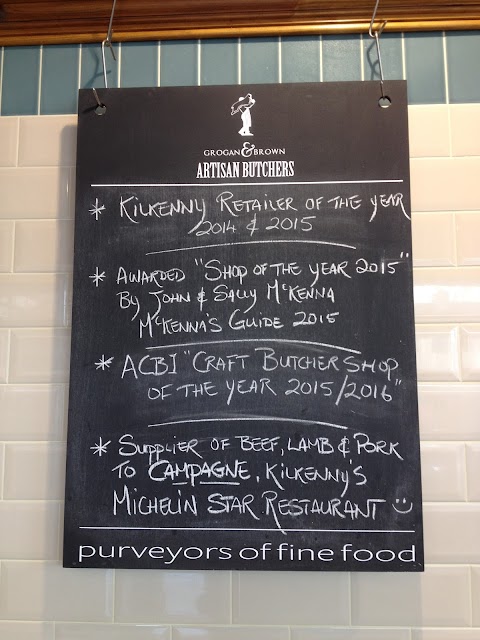 GROGAN & BROWN
ARTISAN BUTCHERS
* KILKENNY RETAILER OF THE YEAR
2014 & 2015
* AWARDED "SHOP OF THE YEAR 2015"
BY JOHN & SALLY McKENNA
McKENNA'S GUIDE 2015
* ACBI "CRAFT BUTCHER SHOP
OF THE YEAR 2015/2016"
* SUPPLIER OF BEEF, LAMB & PORK
TO CAMPAGNE, KILKENNY'S
MICHELIN STAR RESTAURANT
purveyors of fine food